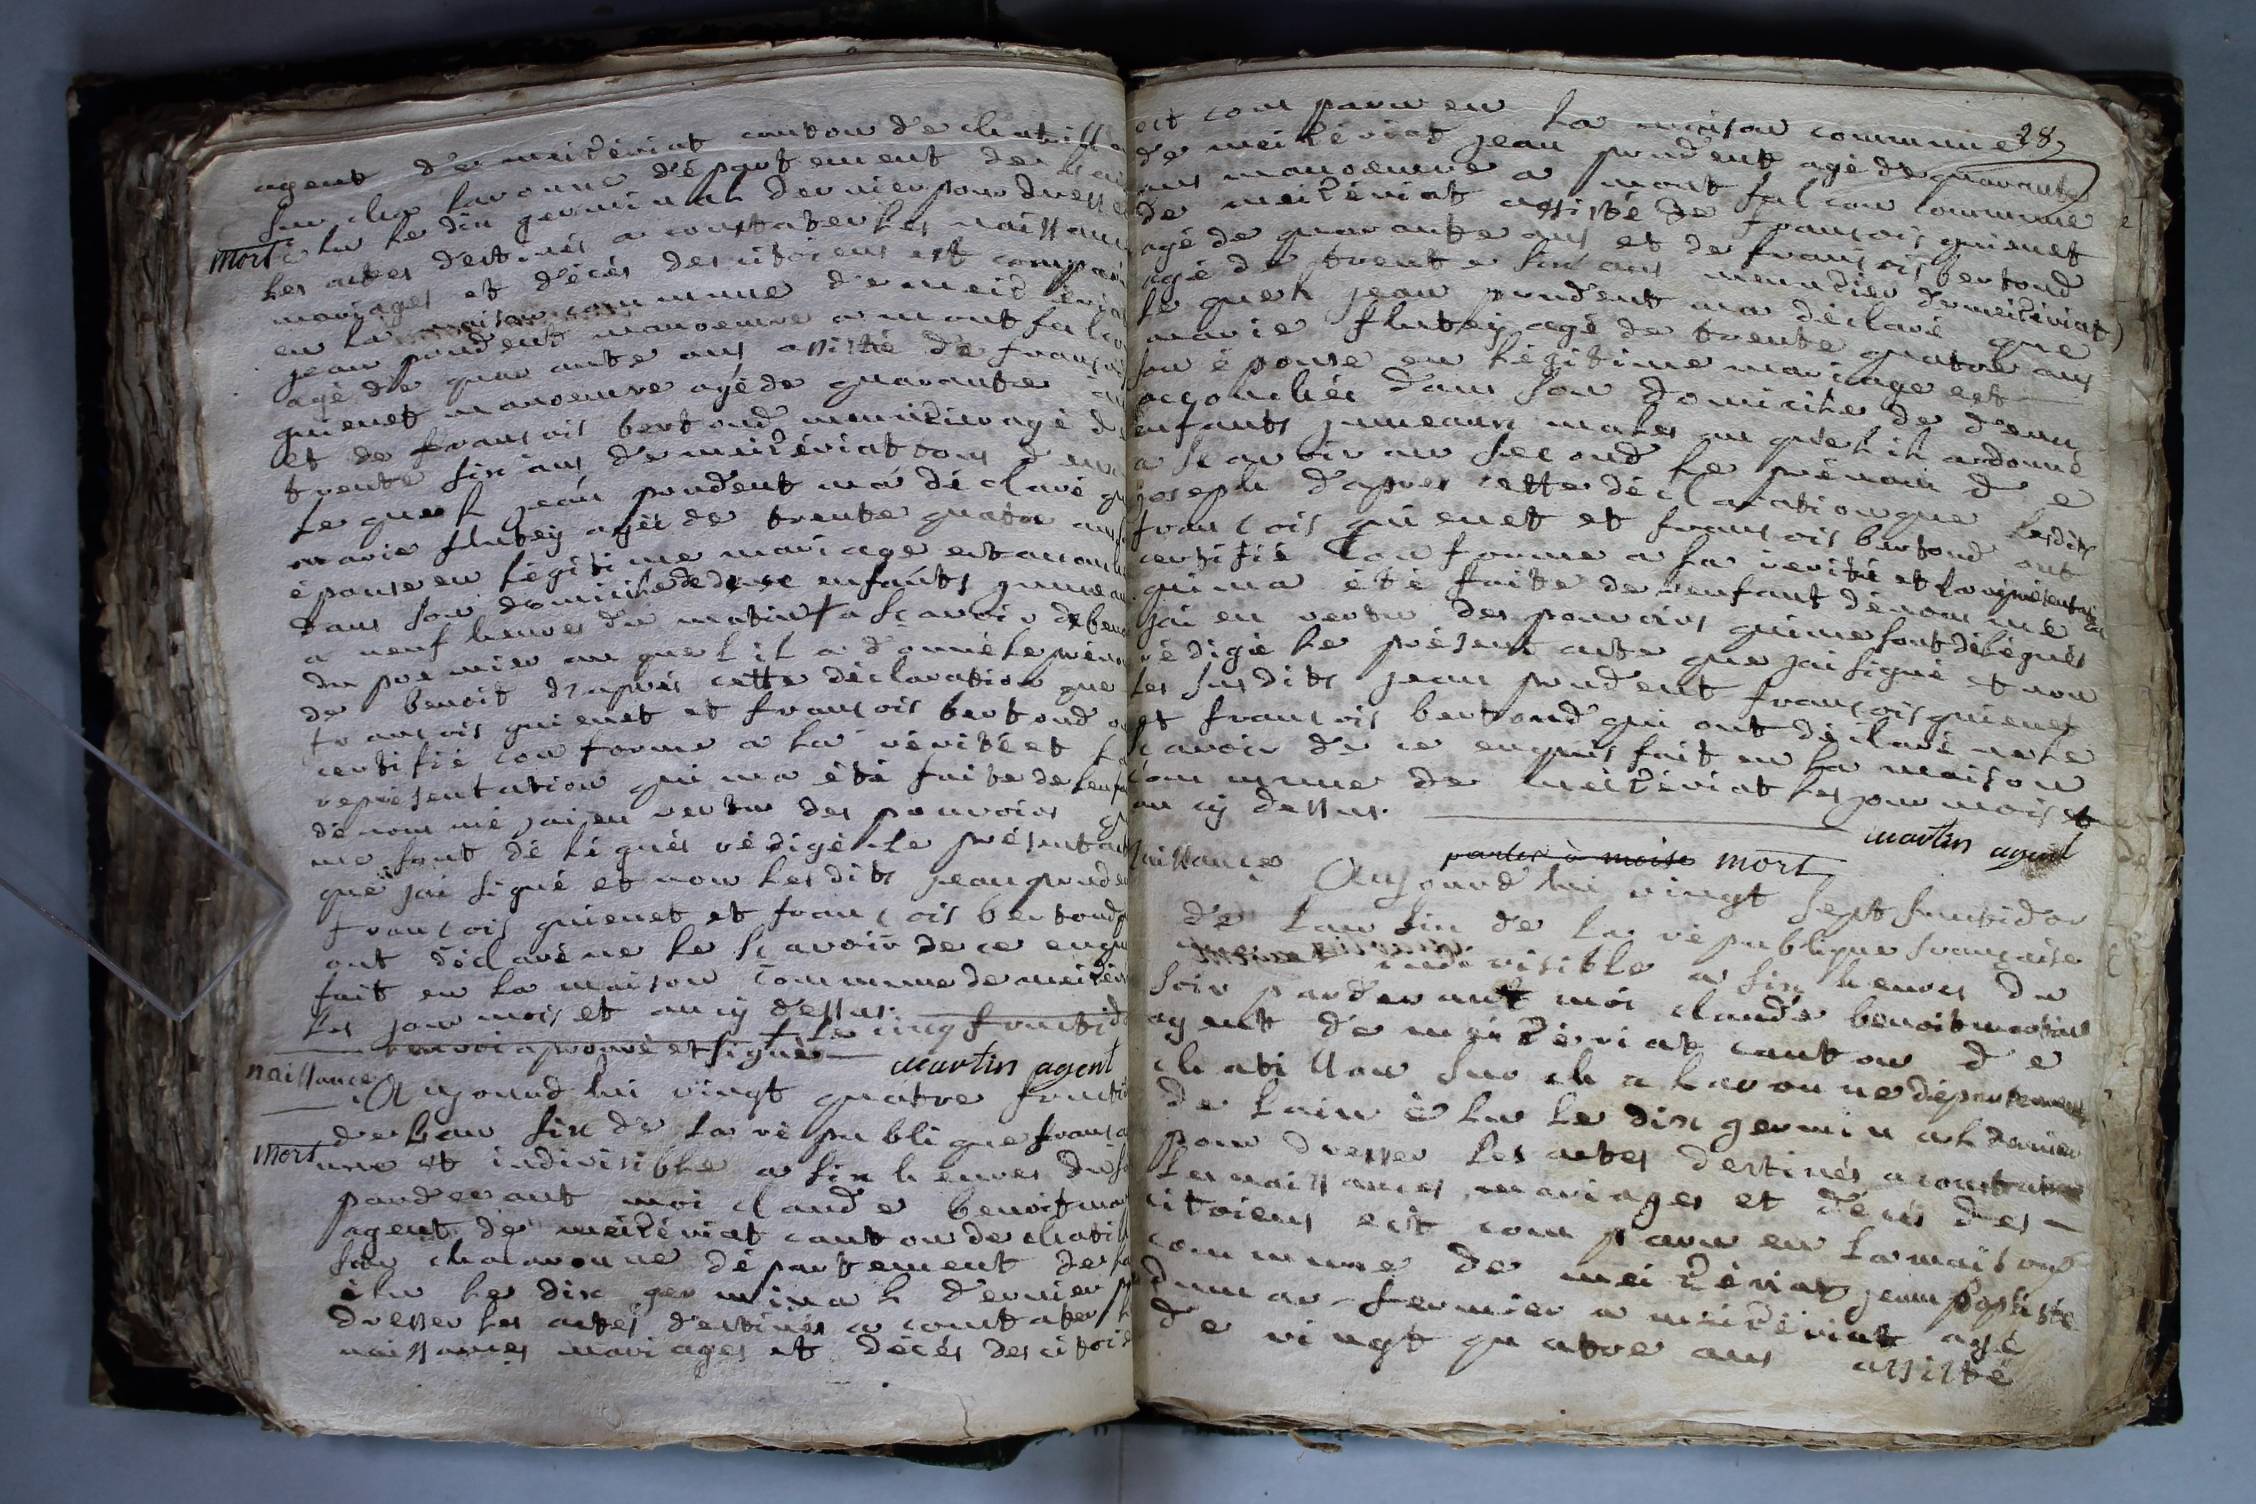 agent de meitériat canton de chatillon
sur cha laronne département de lain
mort élu le dix germinal dernier pour dresser
les actes destinés a constater les naissances
mariages et décés des citoiens est comparu
en la maison commune de meitériat
jean prudent manoeuvre a mont falcon
agé de quarante ans assisté de françois
guienet manoeuvre agé de quarante ans
et de françois bertoud menuizier agé de
trente six ans de meitériat tous deux
le quel jean prudent ma déclaré que
marie flutey agée de trente quatre ans
épouse en légitime mariage est accouché
dans son domicile de deux enfants jumeaux
a neuf heures du matin + a sçavoir
du premier au quel il a donné le prénom
de benoit d'après cette déclaration que
françois guienet et françois bertoud ont
certifié conforme a la vérité et la
représentation qui ma été faite de lenfant
dénommé jai en vertu des pouvoirs qui
me sont délégués rédigé le présent acte
que jai signé et non lesdits jean prudent
françois guienet et françois bertoud qui
ont déclaré ne le sçavoir de ce enquis
fait en la maison commune de meitériat
les jour mois et an cy dessus. + le cinq fructidor
renvoi aprouvé et signé martin agent
naissance Aujourdhui vingt quatre fructidor
de lan six de la république française
mort une et indivisible a six heures du soir
pardevant moi claude benoit martin
agent de meitériat canton de chatillon
sur chalaronne département de lain
élu le dix germinal dernier pour
dresser les actes destinés a constater les
naissances mariages et décés des citoiens
28
est comparu en la maison commune
de meitériat jean prudent agé de quarante
ans manoeuvre a mont falcon commune
de meitériat assisté de françois guienet
agé de quarante ans et de françois bertoud
agé de trente six ans menuizier de meitériat
le quel jean prudent ma déclaré que
marie flutey agé de trente quatre ans
son épouse en légitime mariage est
accouchée dans son domicile de deux
enfants jumeaux males au quel il a donné
a sçavoir au second le prénom de
joseph d'apres cette déclaration que lesdits
françois guienet et françois bertoud ont
certifié conforme a la vérité et la représentation
qui ma été faite de lenfant dénommé
jai en vertu des pouvoirs qui me sont délégués
rédigé le présent acte que jai signé et non
les susdits jean prudent françois guienet
et françois bertoud qui ont déclaré ne le
sçavoir de ce enquis fait en la maison
commune de meitériat les jour mois et
an cy dessus.
martin agent
naissance mort
Aujourdhui vingt sept fructidor
de lan six de la république française
indivisible a six heures du
soir pardevant moi claude benoit martin
agent de meitériat canton de
chatillon sur chalaronne département
de lain élu le dix germinal dernier
pour dresser les actes destinés a constater
les naissances mariages et décés des
citoiens est comparu en la maison
commune de meitériat jean baptiste
dumar fermier a meitériat agé
de vingt quatre ans assisté